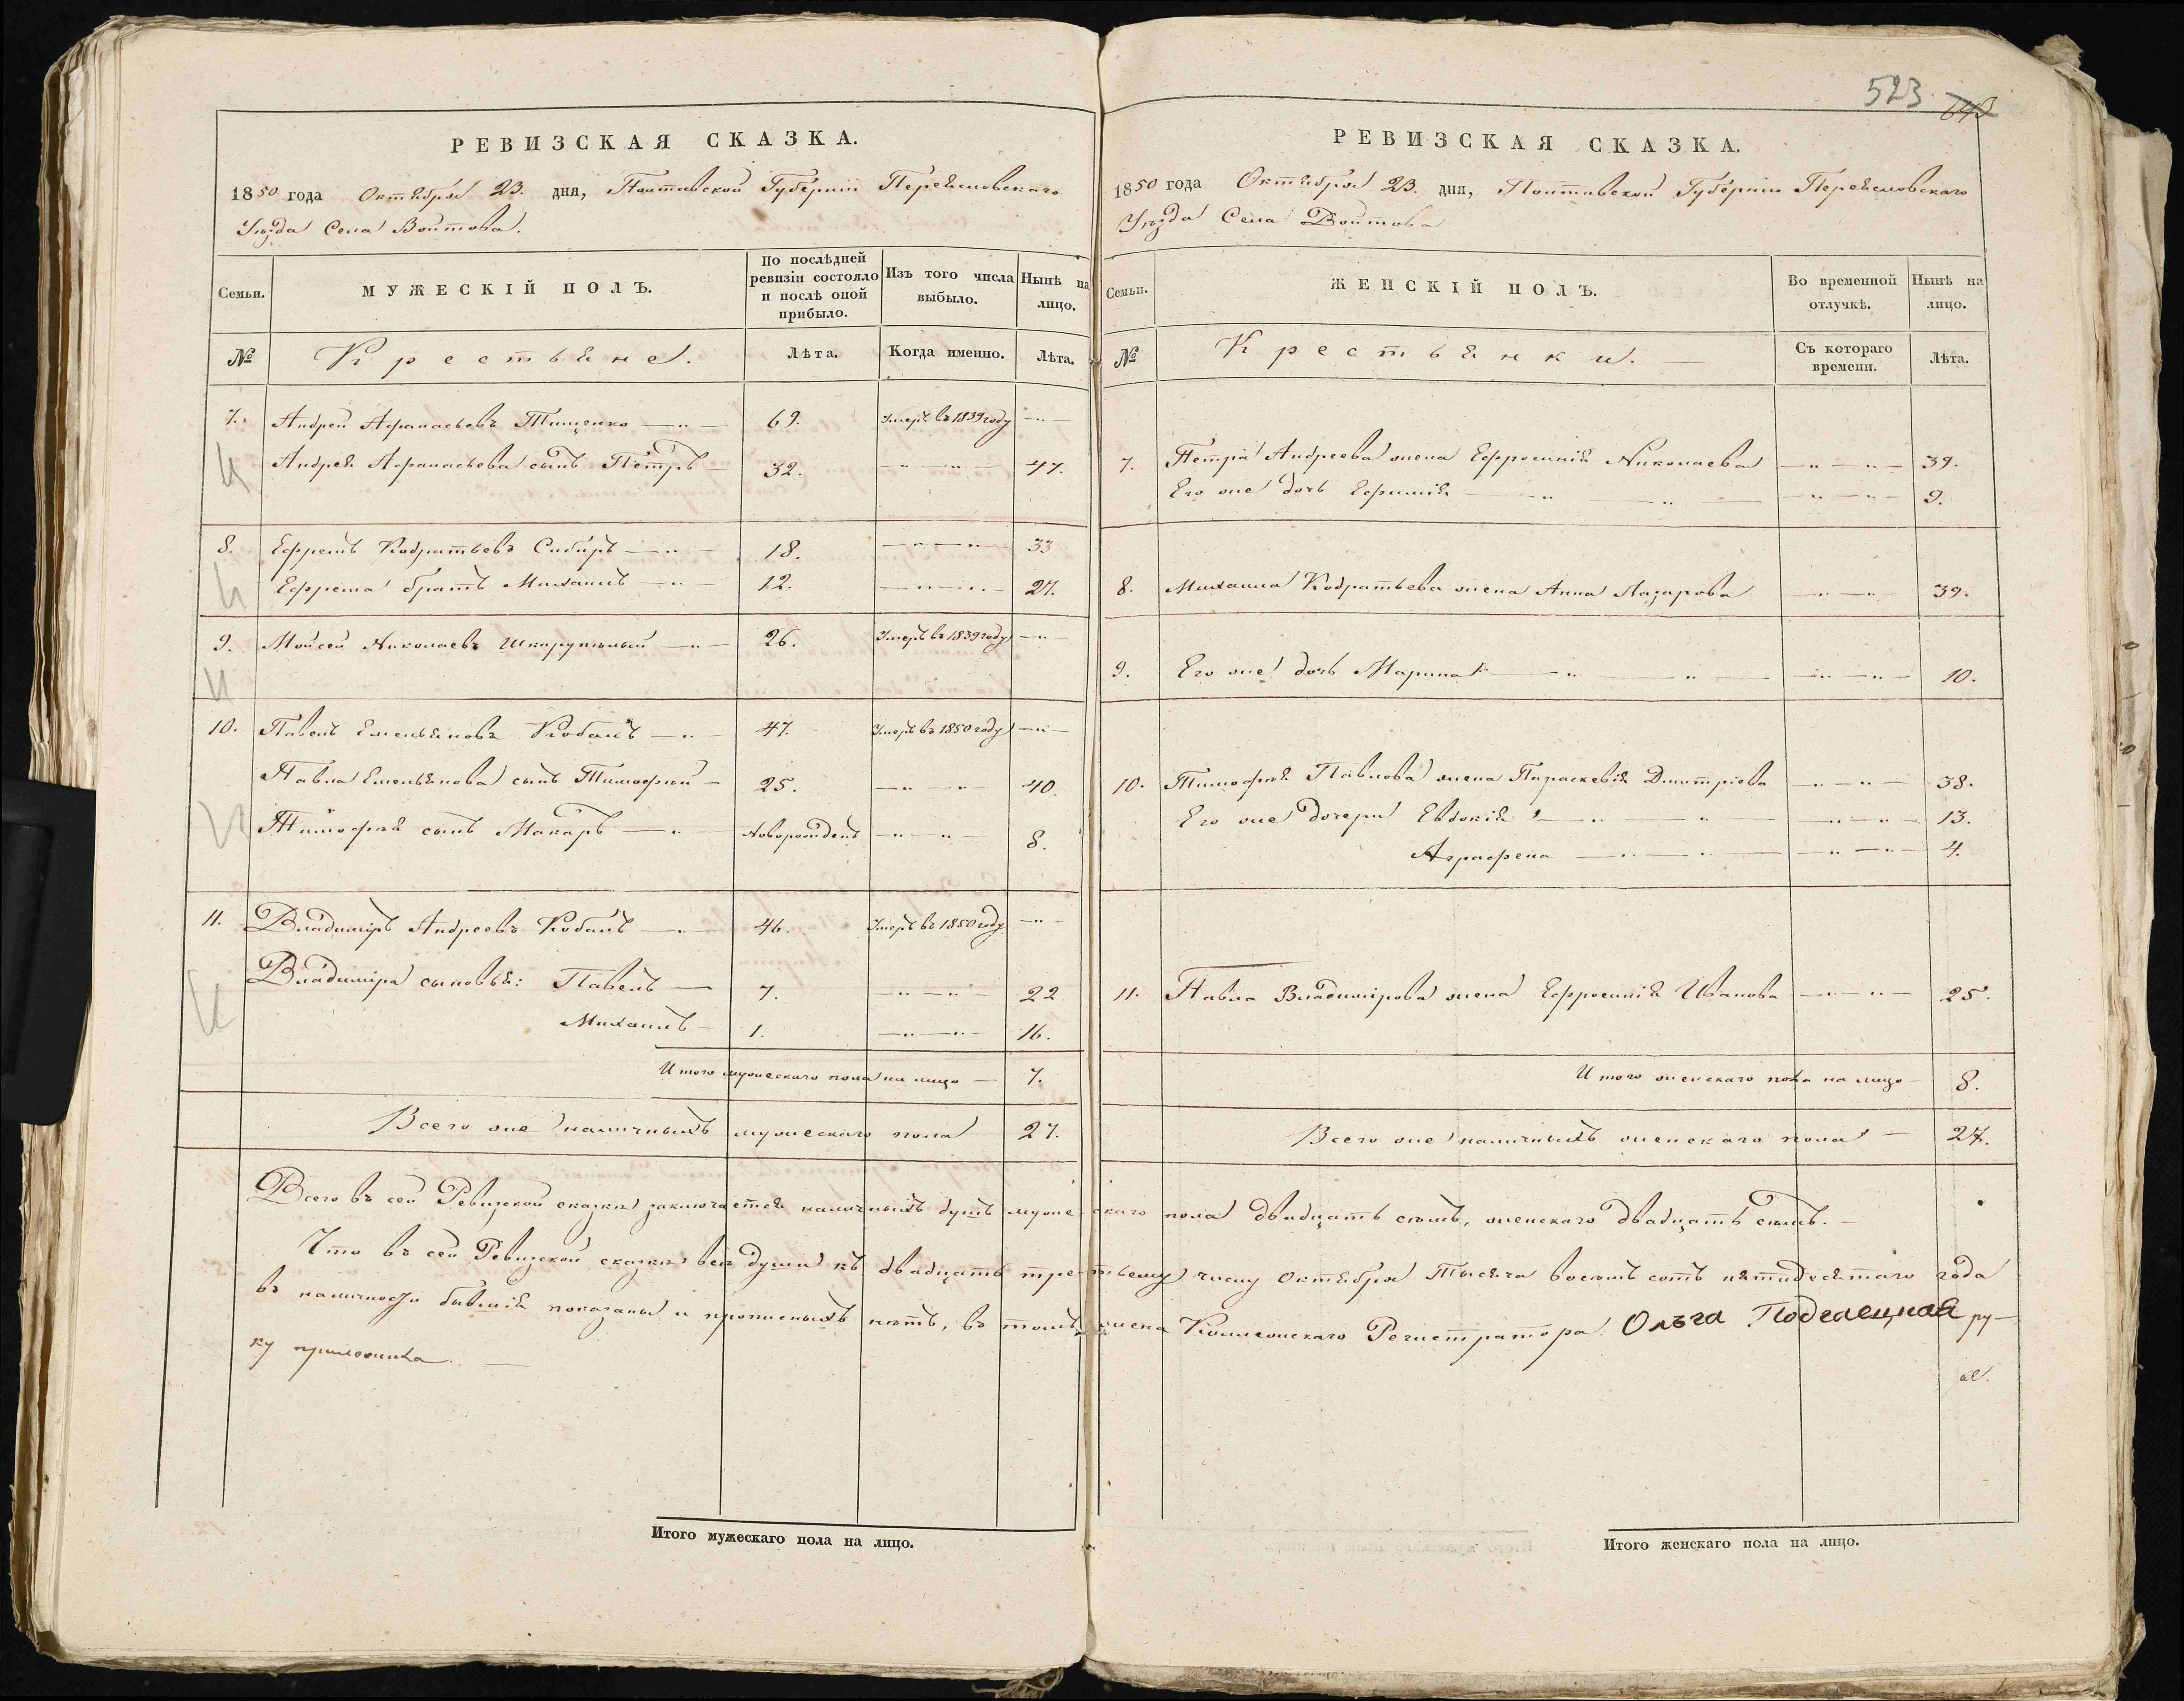 РЕВИЗСКАЯ СКАЗКА.
1850 года Октября 23. дня, Полтавской Губерніи Переяславскаго
Уѣзда Села Войтова.
Семьи.
МУЖЕСКІЙ ПОЛЪ.
По послѣдней ревизіи состояло и послѣ оной прибыло.
Изъ того числа выбыло.
Нынѣ на лицо.
№
Крестьяне.
Лѣта.
Когда именно.
Лѣта.
7. Андрей Афанасьевъ Тищенко — 69. Умеръ въ 1839 году —
Андрея Афанасьева сынъ Петръ — 32. — 47.
8. Ефремъ Кодратьевъ Сибиръ — 18. — 33
Ефрема братъ Михаилъ — 12. — 27.
9. Мойсей Николаевъ Шкарупѣлый — 26. Умеръ въ 1839 году —
10. Павелъ Емельяновъ Кобанъ — 47. Умеръ въ 1850 году —
Павла Емельянова сынъ Тимофѣй — 25. — 40.
Тимофѣя сынъ Макаръ — Новорожденъ — 8.
11. Владиміръ Андреевъ Кобанъ — 46. Умеръ въ 1850 году —
Владиміра сыновья: Павелъ — 7. — 22
Михаилъ — 1. — 16.
Итого мужескаго пола на лицо — 7.
Всего же наличныхъ мужескаго пола 27.
Итого мужескаго пола на лицо.
523.
РЕВИЗСКАЯ СКАЗКА.
1850 года Октября 23. дня, Полтавской Губерніи Переяславскаго
Уѣзда Села Войтова
Семьи.
ЖЕНСКІЙ ПОЛЪ.
Во временной отлучкѣ.
Нынѣ на лицо.
№
Крестьянки. —
Съ котораго времени.
Лѣта.
7. Петра Андреева жена Ефросинія Николаева — 39.
Его же дочь Ефимія — 9.
8. Михаила Кодратьева жена Анна Лазарова — 39.
9. Его же дочь Марина — 10.
10. Тимофѣя Павлова жена Параскевія Дмитріева — 38.
Его же дочери Евдокія — 13.
Аграфена — 4.
11. Павла Владимірова жена Ефросинія Иванова — 25.
Итого женскаго пола на лицо — 8.
Всего же наличныхъ женскаго пола — 27.
Всего въ сей Ревизской сказкѣ заключается наличныхъ душъ мужескаго пола двадцать семь, женскаго двадцать семь. —
Что въ сей Ревизской сказкѣ всѣ души къ двадцать третьему числу Октября Тысяча восемь сотъ пятидесятаго года
въ наличности бывшія показаны и прописныхъ нѣтъ, въ томъ жена Коллежскаго Регистратора Ольга ру-
ку приложила. —
Итого женскаго пола на лицо.